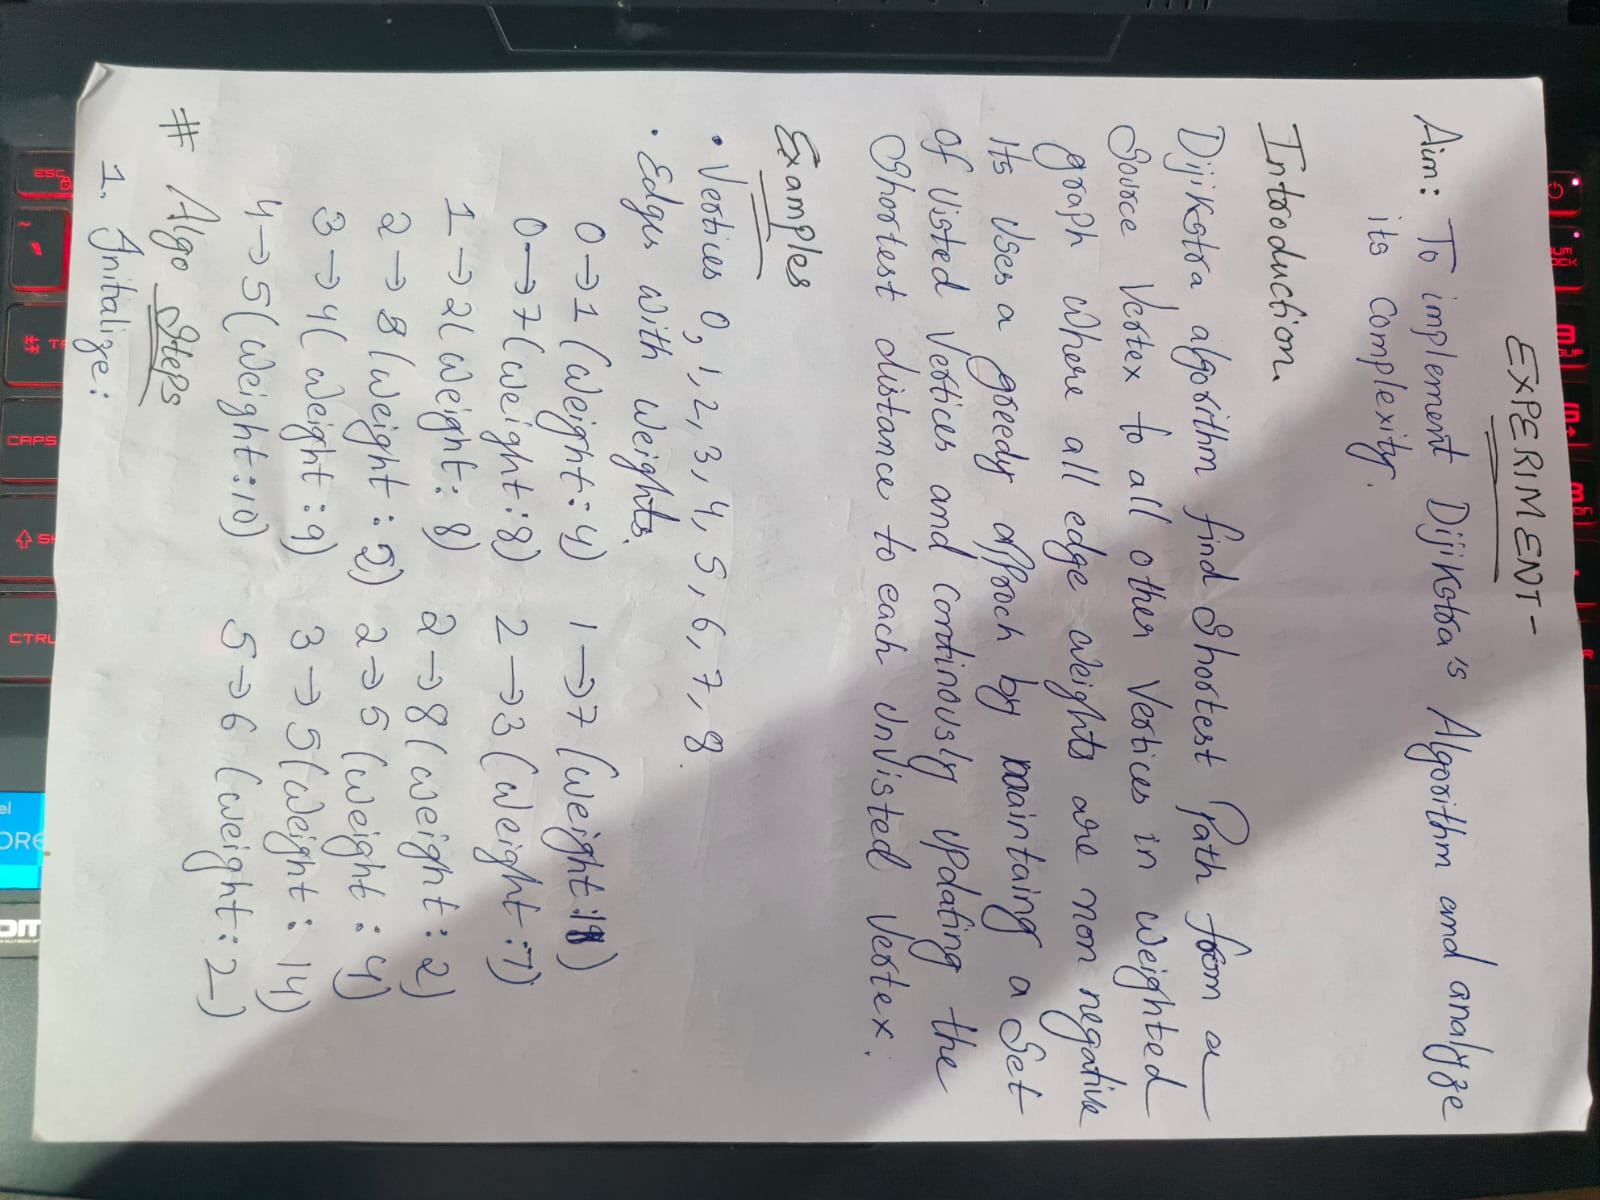 EXPERIMENT-
Aim: To implement Dijikstra's Algorithm and analyze
its Complexity.
Introduction.
Dijikstra algorithm find Shortest Path from a
Source Vertex to all other Vertices in weighted
graph where all edge weights are non negative
Its Uses a greedy approch by maintaing a Set
of Visted Vertices and Continously Updating the
Shortest distance to each UnVisted Vertex.
Examples
• Vertices 0, 1, 2, 3, 4, 5, 6, 7, 8.
• Edges with Weights.
0→1 (Weight: 4) 1→7 (weight:11)
0→7 (weight:8) 2→3 (Weight:7)
1→2( Weight: 8) 2→8 (weight: 2)
2→8 (Weight: 2) 2→5 (weight: 4)
3→4( Weight: 9) 3→5 (Weight: 14)
4→5 (Weight:10) 5→6 (weight: 2)
# Algo Steps
1. Initalize:
ESC
CAPS
CTRL